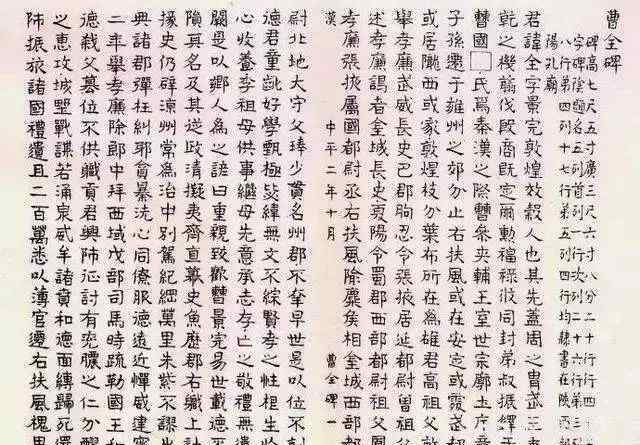 曹全碑
碑高七尺五寸廣三尺六寸八分二十行行四
字碑陰題名五列首列一行次列二十六行三
八行第四列十七行第五列四行均隸書在陝西
陽孔廟
君諱全字景完敦煌效穀人也其先蓋周之胄武王
乾之機翦伐殷商既定爾勳福祿攸同封弟叔振鐸
曹國□氏焉秦漢之際曹參夾輔王室世宗廓土斥
子孫遷于雍州之郊分止右扶風或在安定或處武
或居隴西或家敦煌枝分葉布所在為雄君高祖父
舉孝廉武威長史巴郡朐忍令張掖居延都尉曾祖
述孝廉謁者金城長史夏陽令蜀郡西部都尉祖父
孝廉張掖屬國都尉丞右扶風隃麋侯相金城西部
漢 中平二年十月 曹全碑一
尉北地大守父琫少貫名州郡不幸早世是以位不副
德君童齔好學甄極毖緯無文不綜賢孝之性根生於
心收養季祖母供事繼母先意承志存亡之敬禮無
闕是以鄉人為之諺曰重親致歡曹景完易世載德
隕其名及其從政清擬夷齊直慕史魚歷郡右職上計
掾史仍辟涼州常為治中別駕紀綱萬里朱紫不謬出
典諸郡彈枉糾邪貪暴洗心同僚服德遠近憚威建寧
二年舉孝廉除郎中拜西域戊部司馬時疏勒國王和
德弒父篡位不供職貢君興師征討有兗膿之仁分醪
之惠攻城野戰謀若涌泉威牟諸賁和德面縛歸死還
師振旅諸國禮遺且二百萬悉以薄官遷右扶風槐里